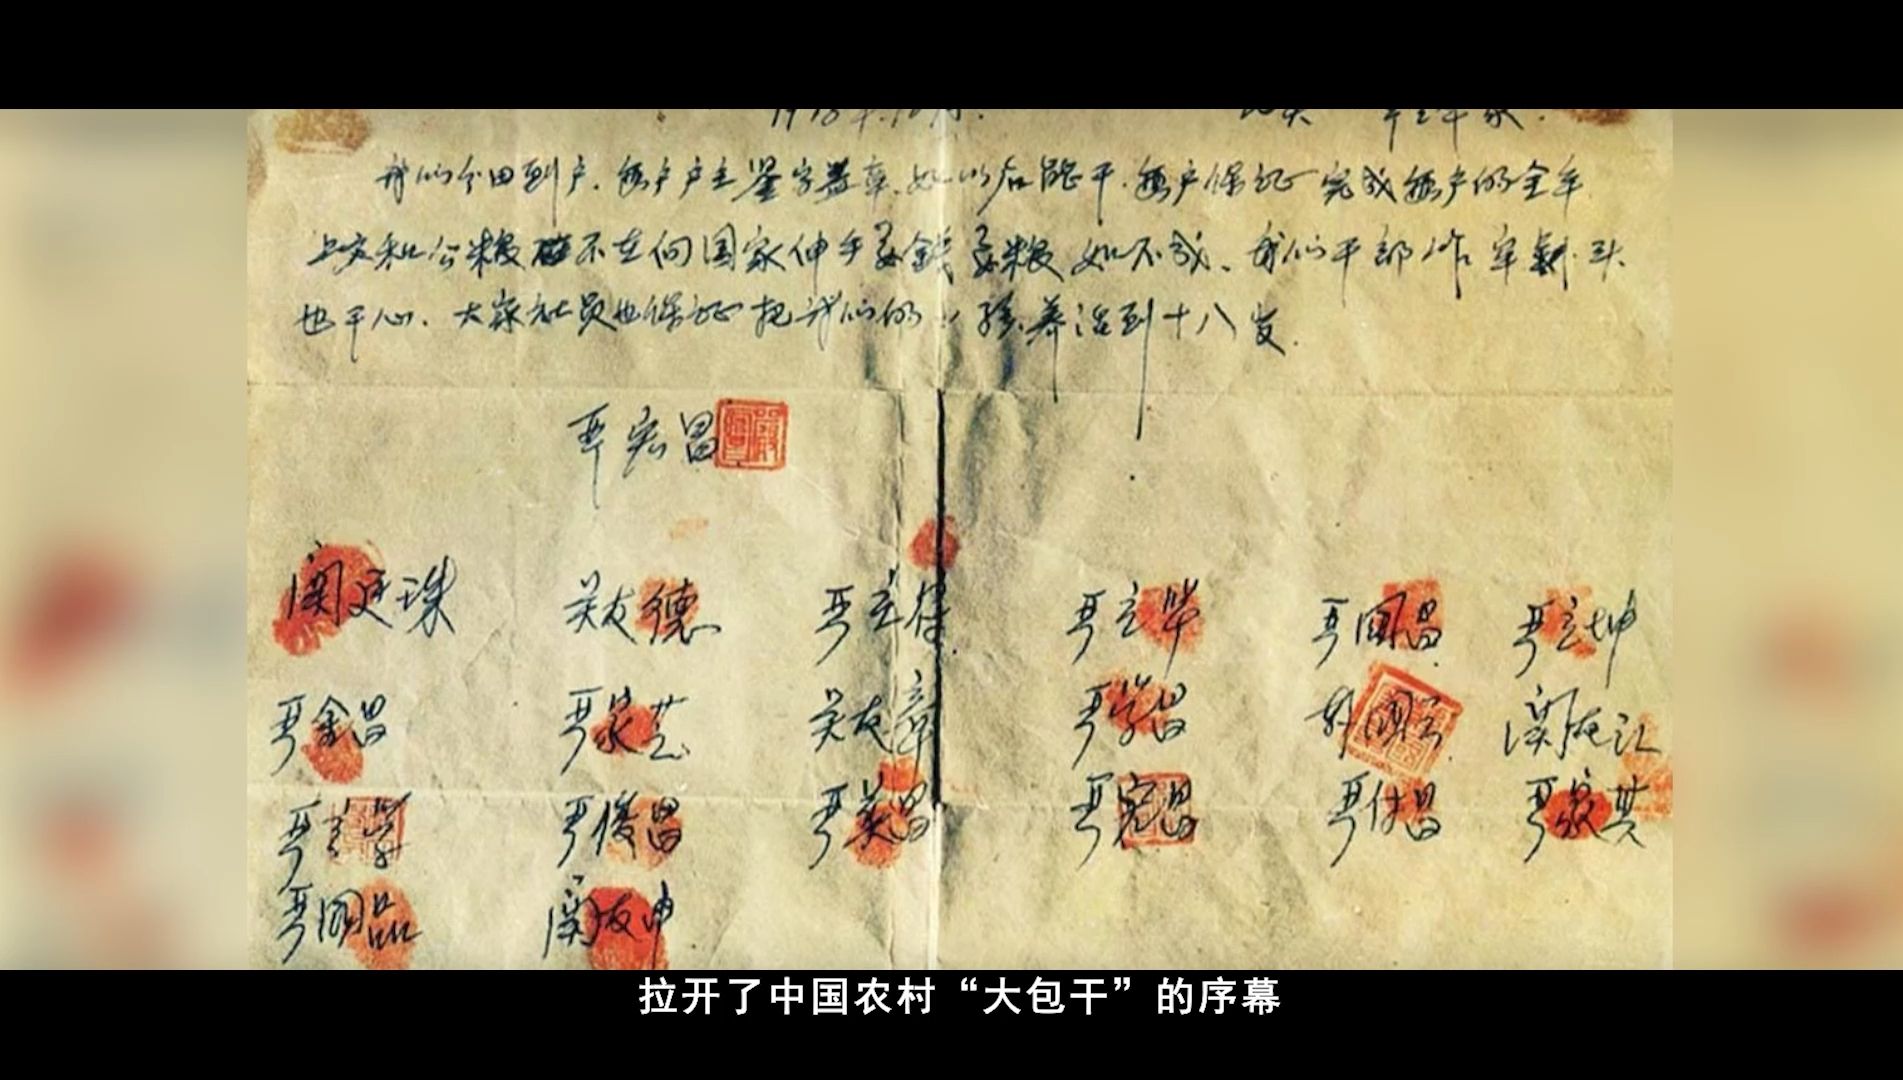 1978年12月. 地点 严立华家.
我们分田到户.每户户主鉴字盖章.如以后能干.每户保证完成每户的全年
上交和公粮不在向国家伸手要钱要粮如不成.我们干部作牢剎头
也干心.大家社员也保证把我们的小孩养活到十八岁.
严宏昌
关廷珠 关友德 严立符 严立华 严国昌 严立坤
严金昌 严家芝 关友章 严学昌 韩国云 关友江
严立学 严俊昌 严美昌 严宏昌 严付昌 严家其
严国品 关友申
拉开了中国农村“大包干”的序幕